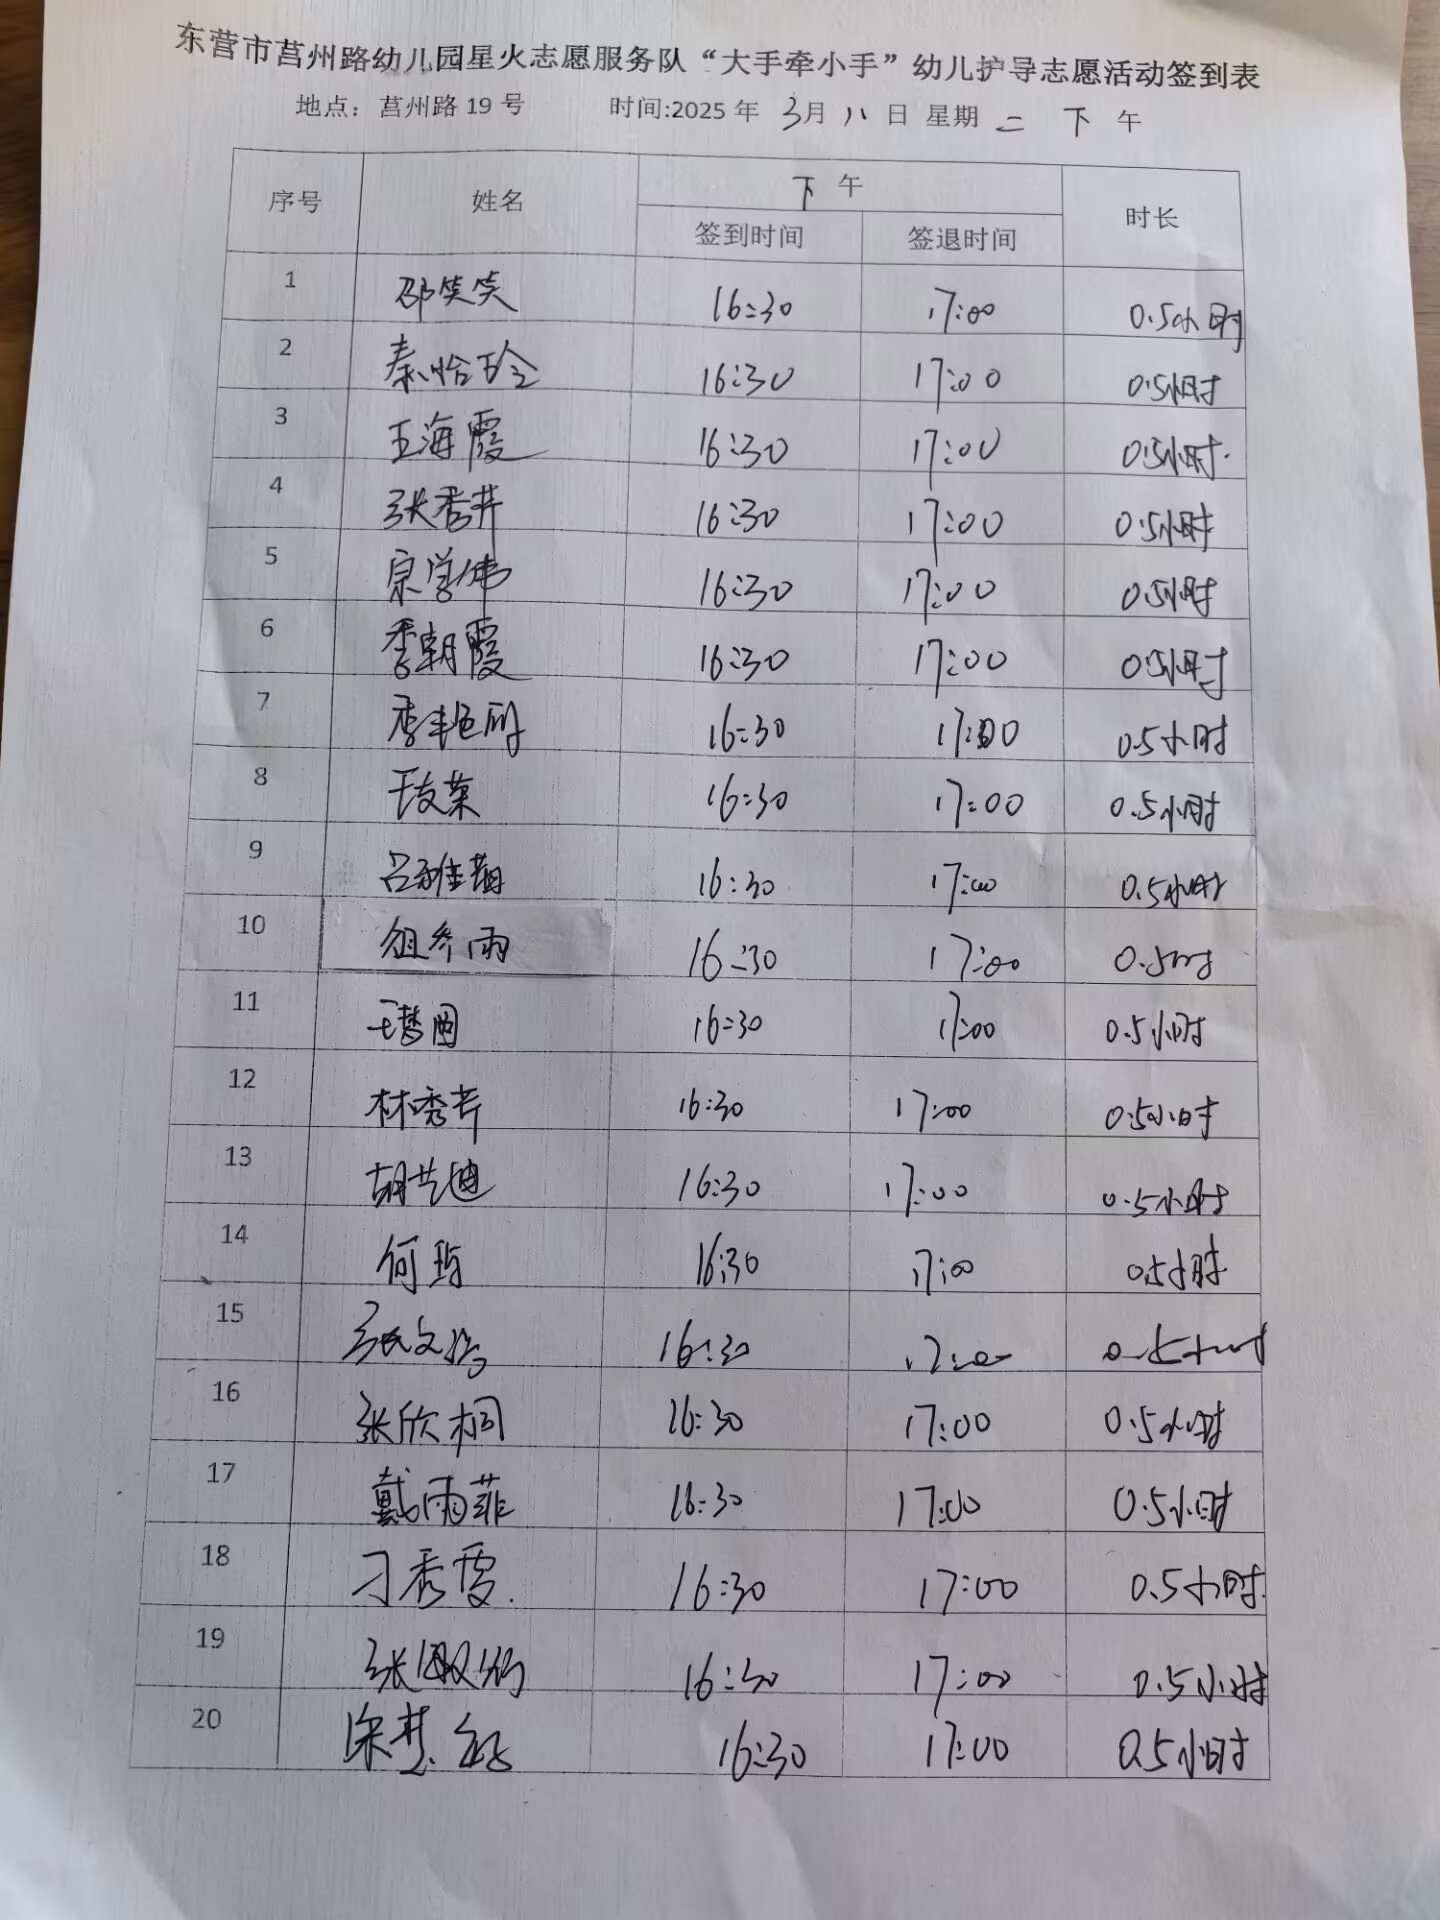 东营市莒州路幼儿园星火志愿服务队“大手牵小手”幼儿护导志愿活动签到表
地点：莒州路 19 号 时间:2025 年 3月 八 日 星期 二 下 午
序号 姓名 下 午 时长
签到时间 签退时间
1 邵笑笑 16:30 17:00 0.5小时
2 秦怡玲 16:30 17:00 0.5小时
3 王海霞 16:30 17:00 0.5小时
4 张秀井 16:30 17:00 0.5小时
5 宗学伟 16:30 17:00 0.5小时
6 李朝霞 16:30 17:00 0.5小时
7 李艳丽 16:30 17:00 0.5小时
8 王友菜 16:30 17:00 0.5小时
9 吕雅 16:30 17:00 0.5小时
10 雨 16:30 17:00 0.5小时
11 王梦圆 16:30 17:00 0.5小时
12 林秀芹 16:30 17:00 0.5小时
13 胡兰迪 16:30 17:00 0.5小时
14 何 16:30 17:00 0.5小时
15 张文 16:30 17:00 0.5小时
16 张欣桐 16:30 17:00 0.5小时
17 戴雨菲 16:30 17:00 0.5小时
18 刁秀霞. 16:30 17:00 0.5小时
19 张 16:30 17:00 0.5小时
20 16:30 17:00 0.5小时